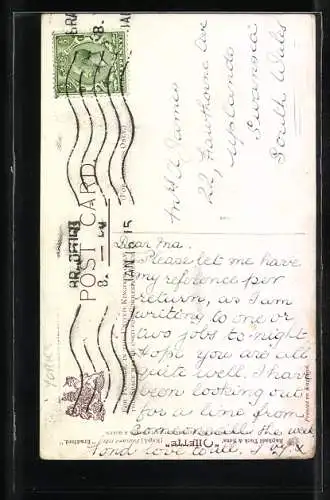 POST CARD
Mrs A James
22, Hawthorne Ave
Uplands
Swansea
South Wales
Dear Ma.
Please let me have
my reference per
return, as I am
writing to one or
two jobs to-night
Hope you are all
quite well. I have
been looking out
for a line from
someone all the week
Fond love to all.
"OILETTE"
Raphael Tuck & Sons'
"Bradford."
YORKS